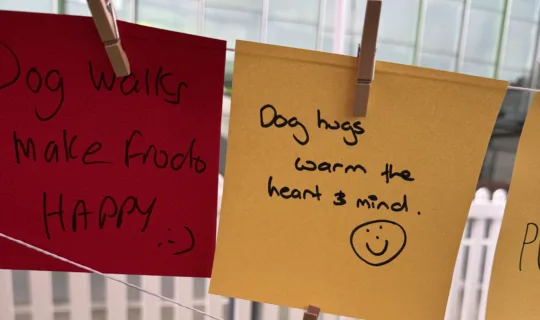 Dog walks
make frodo
HAPPY
:-)
Dog hugs
warm the
heart & mind.
P